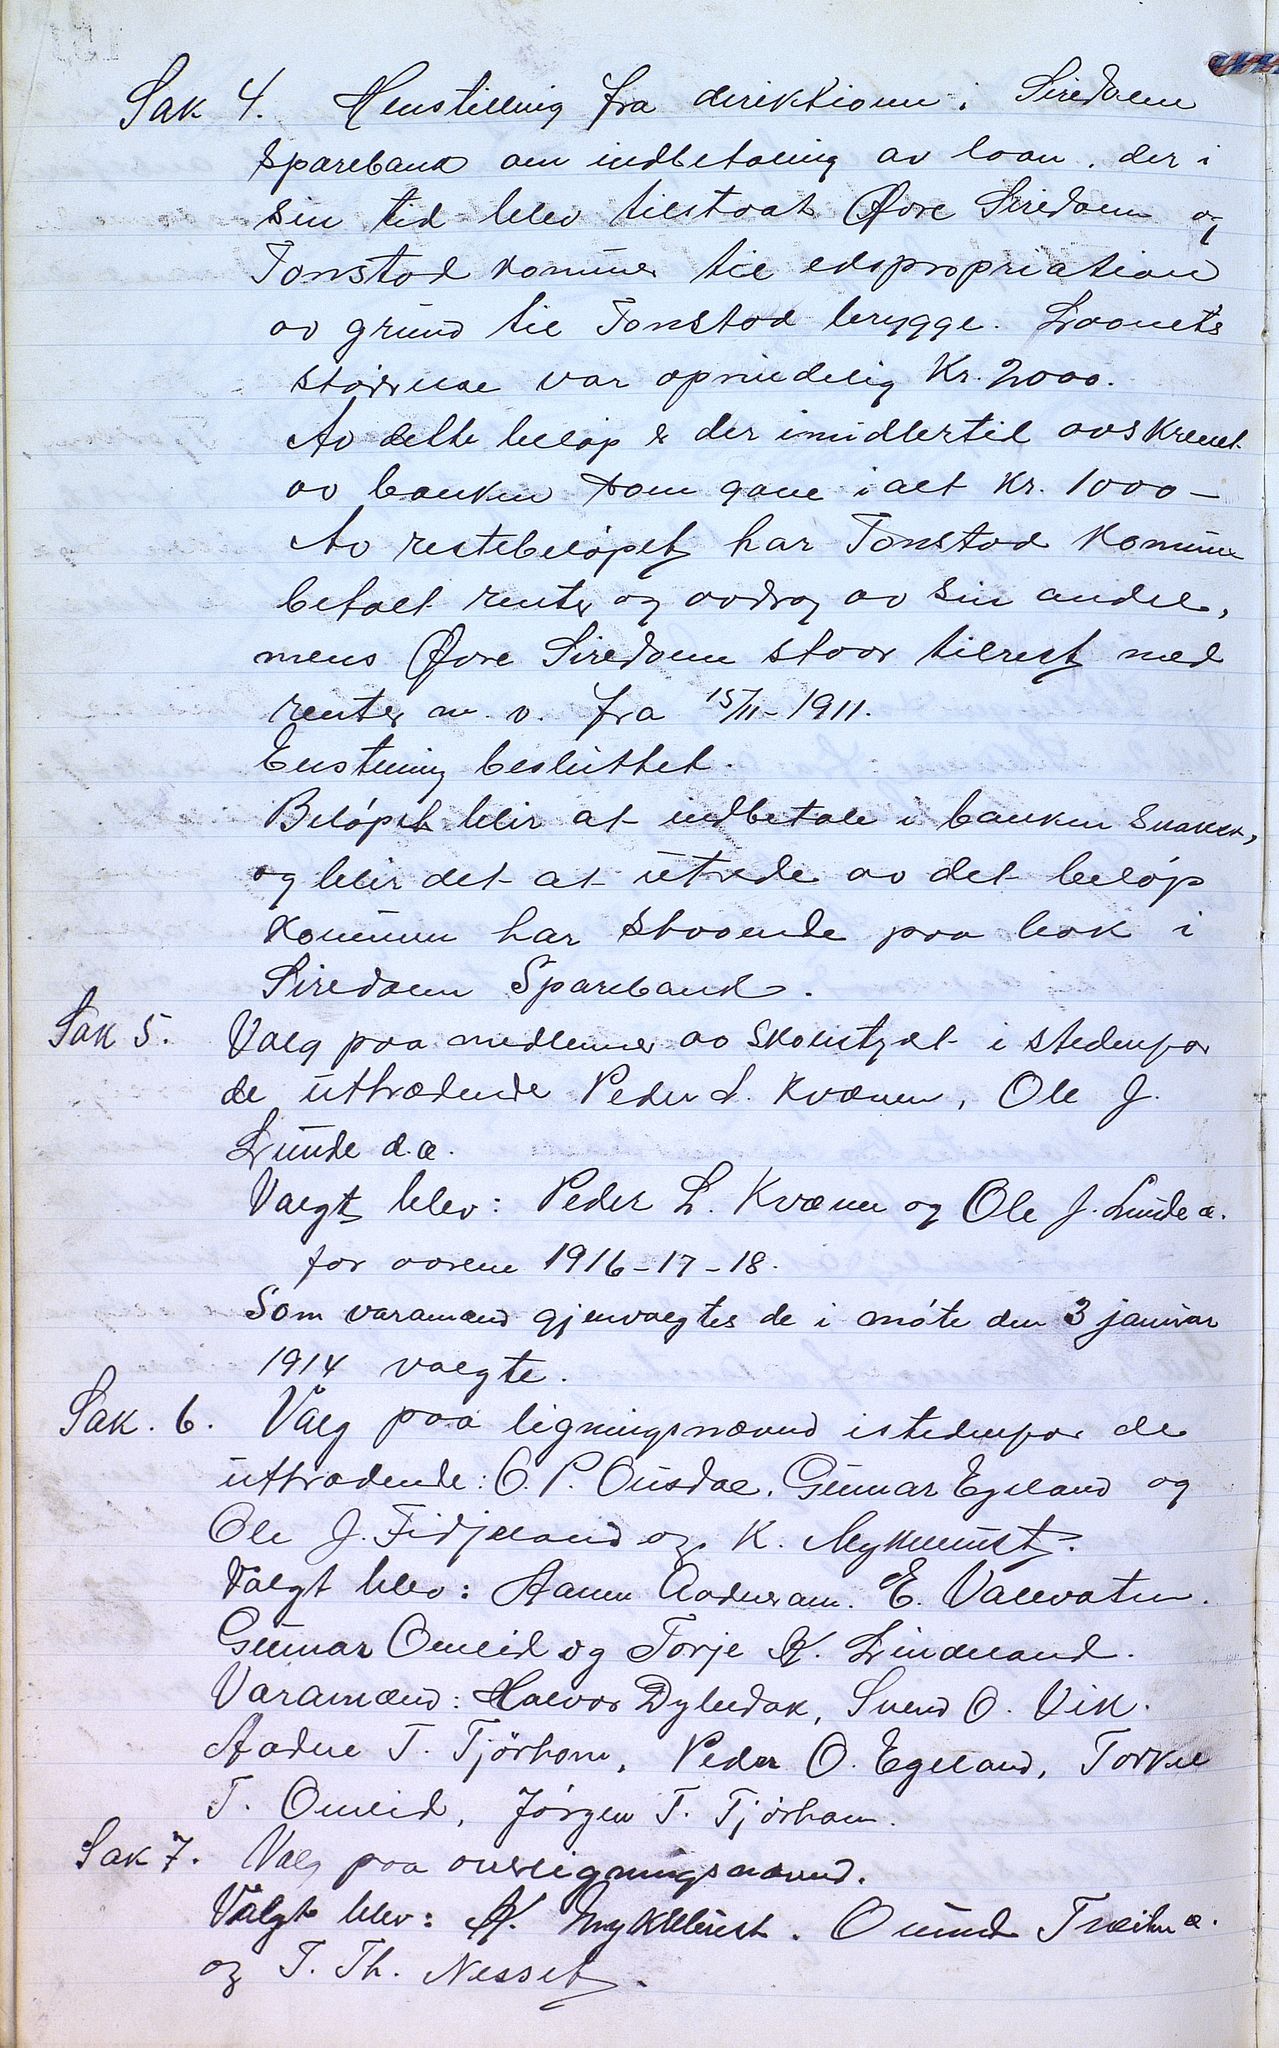 Sak 4. Henstilling fra direktionen i Siredalen
Sparebank om indbetaling av laan, der i
sin tid blev tilstaat Øvre Siredalen og
Tonstad kommuner til ekspropriation
av grund til Tonstad brygge. Laanets
størrelse var oprindelig Kr. 2000.
Av dette beløp er der imidlertid avskrevet
av banken som gave ialt Kr. 1000 –
Av restebeløpet har Tonstad Kommune
betalt renter og avdrag av sin andel,
mens Øvre Siredalen staar tilrest med
renter m. v. fra 15/11-1911.
Enstemmig besluttet.
Beløpet blir at indbetale i banken snarest,
og blir det at utrede av det beløp
kommunen har staaende paa bok i
Siredalen Sparebank.
Sak 5. Valg paa medlemmer av Skolestyret i stedenfor
de uttrædende Peder L. Kvænen, Ole J.
Lunde d.æ.
Valgt blev: Peder L. Kvænen og Ole J. Lunde æ.
for aarene 1916-17-18.
Som varamænd gjenvalgtes de i møte den 3 januar
1914 valgte.
Sak. 6. Valg paa ligningsnævnd istedenfor de
uttrædende: O. P. Ousdal, Gunnar Egeland og
Ole J. Fidjeland og K. Myklebust.
Valgt blev: Hannes Aadneram. E. Valevatn.
Gunnar Omlid og Torje K. Lindeland.
Varamænd: Halvor Dybedak, Svend O. Vik.
Aadne T. Tjørhom, Peder O. Egeland, Torkel
T. Omlid, Jørgen T. Tjørhom.
Sak 7. Valg paa overligningsnævnd.
Valgt blev: K. Myklebust. Omund Træthn æ.
og T. Th. Nesset.